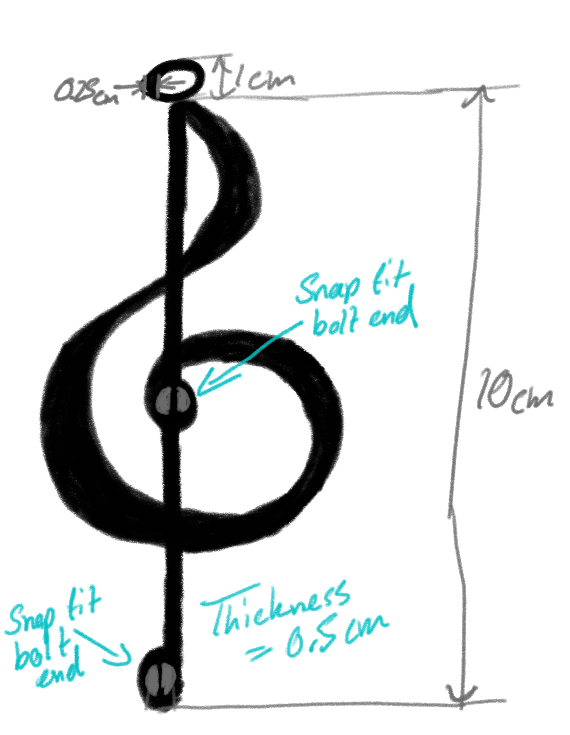 0.25cm
1cm
Snap fit
bolt end
10cm
Snap fit
bolt
end
Thickness
= 0.5cm